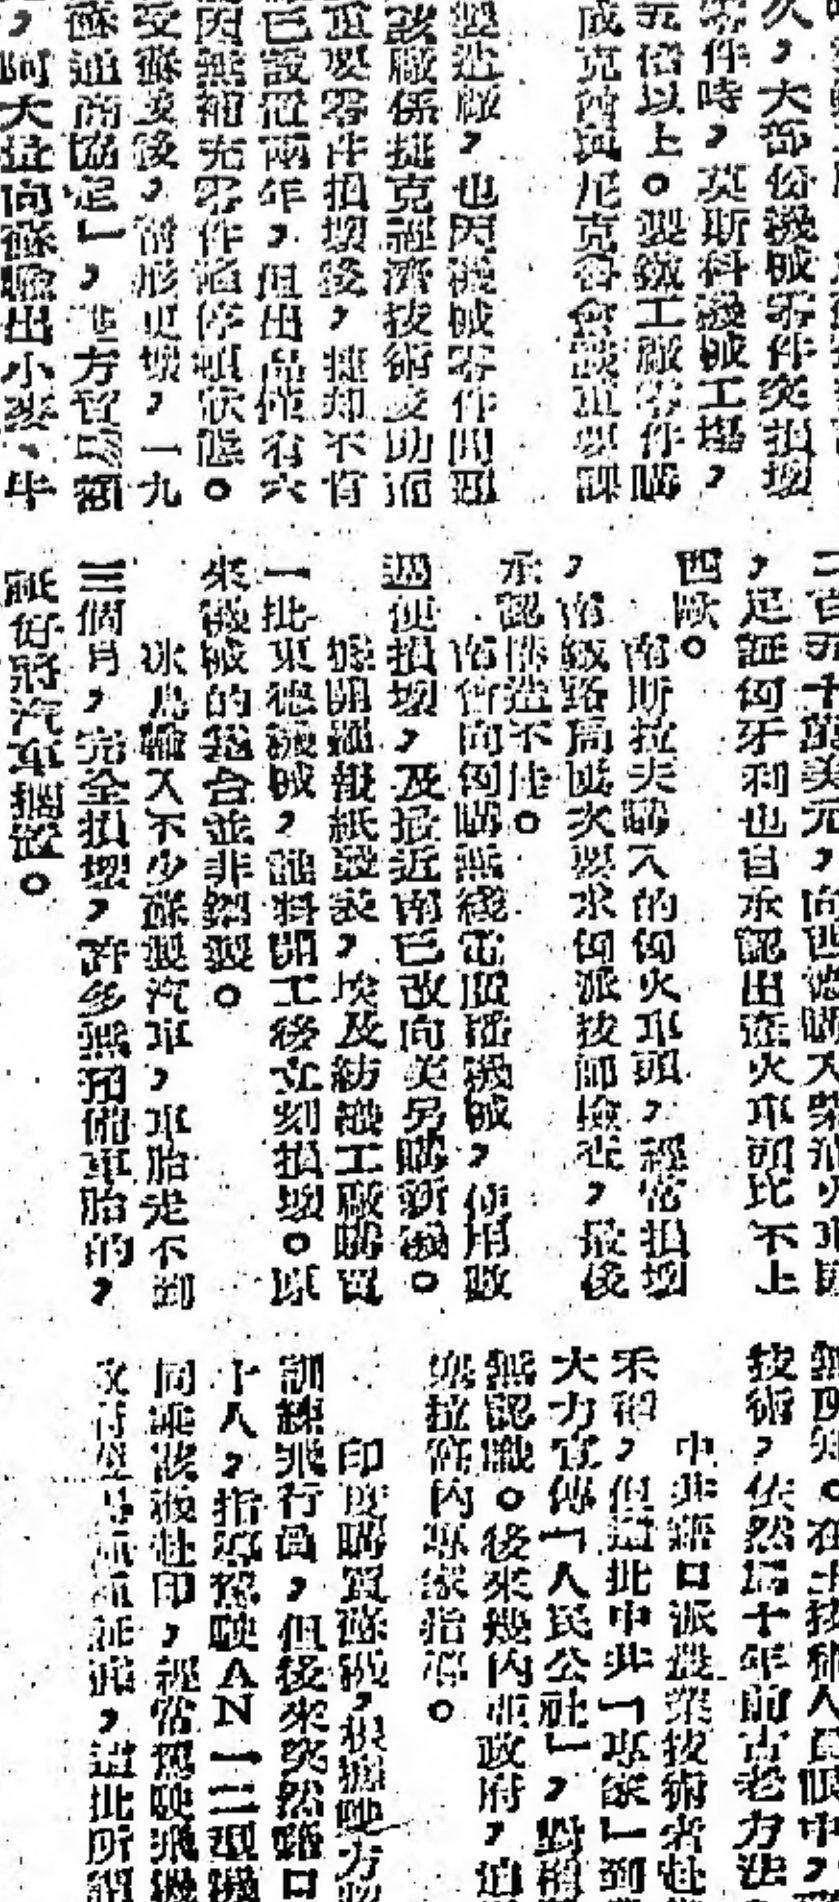 久，大部份機械零件突損壞
零件時，莫斯科機械工場，
五倍以上。製鐵工廠零件購
成克曾與尼克森會談重要課
製造廠，也因機械零件問題
該廠係捷克經濟技術援助而
重要零件損壞後，捷却不肯
已設置兩年，但出品僅有六
因無補充零件陷停頓狀態。
受蘇援後，情形更壞，一九
蘇通商協定」，雙方貿易額
，阿大批向蘇輸出小麥、牛
二百五十萬美元，向西德購入柴油火車頭
，足証匈牙利也自承認出產火車頭比不上
西歐。
南斯拉夫購入的匈火車頭，經常損壞
，南鐵路局屢次要求匈派技師檢查，最後
承認構造不佳。
南曾向匈購無綫電廣播機械，使用數
週便損壞，及最近南已改向美另購新機。
據開羅報紙發表，埃及紡織工廠購買
一批東德機械，誰料開工後立刻損壞。原
來機械的銘合並非鋼製。
冰島輸入不少蘇製汽車，車胎走不到
三個月，完全損壞，許多無預備車胎的，
祇好將汽車擱置。
無所知。在土技術人員眼中，
技術，依然屬十年前古老方法
中共藉口派農業技術者赴
禾稻，但這批中共「專家」到
大力宣傳「人民公社」，對種
無認識。後來幾內亞政府，迫
塞拉富內專家指導。
印度購買蘇機，根據雙方
訓練飛行員，但後來突然藉口
十人，指導駕駛AN一二型機
同乘該機赴印，經常駕駛飛機
，這批所謂